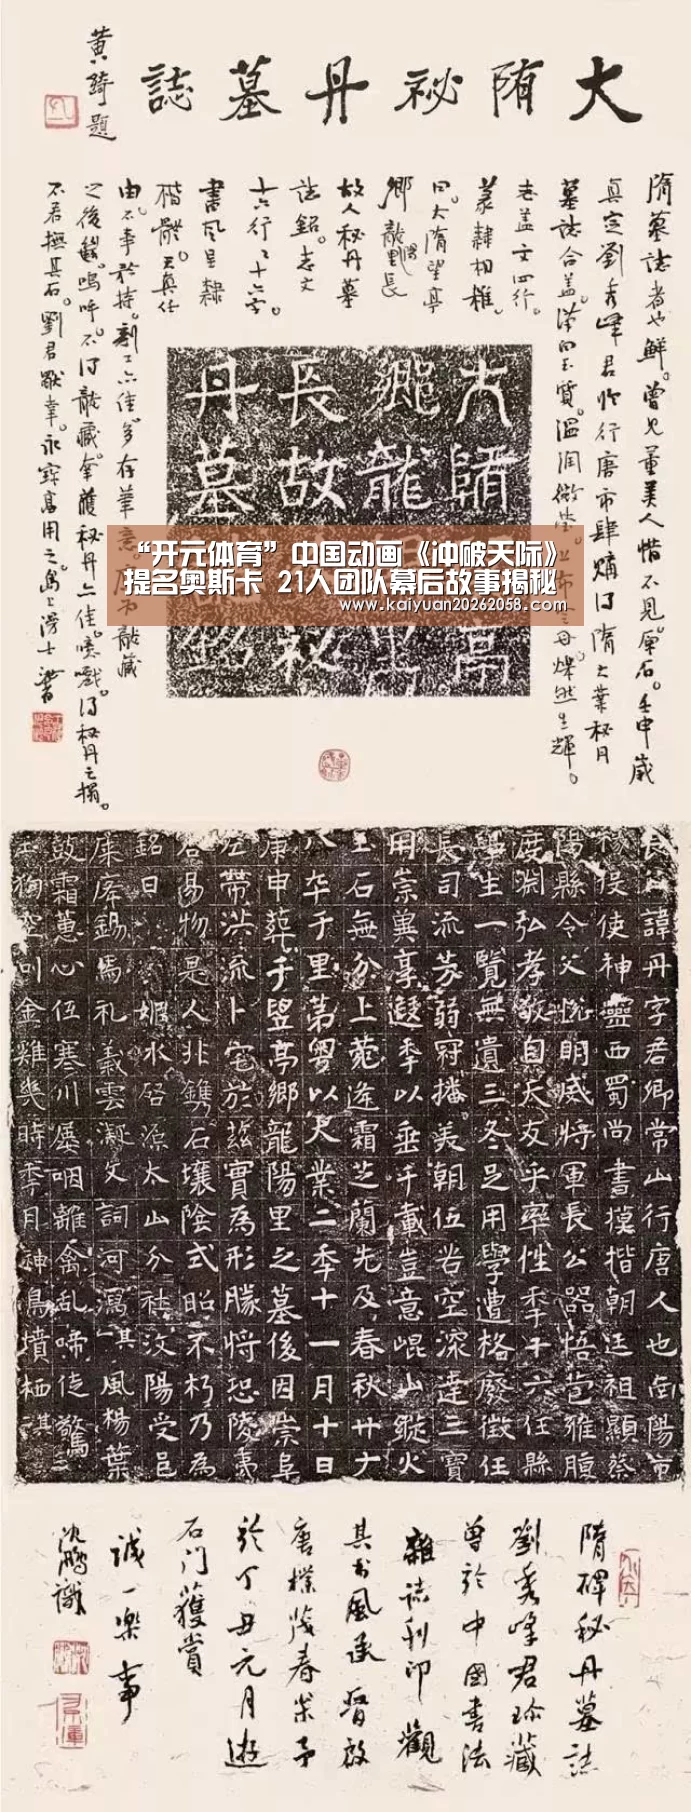 大隋祕丹墓誌
黄綺題
隋墓誌者也鮮。曾見董美人惜不見原石。壬申歲
真定劉秀峰君於行唐市肆購得隋大業秘丹
墓誌合蓋。漢白玉質。溫潤微瑩。
志蓋文四行。
篆隸相雜。
曰。大隋望亭
鄉龍陽里長
故人秘丹墓
誌銘。志文
十六行行十六字。
書風呈隸
楷
由。不事於持。刻工亦佳多存筆意。
之後歟。嗚呼。不得龍藏。拿護秘丹亦佳。噫嚱。得秘丹之搨。
不若撫其石。劉君
“开元体育”中国动画《冲破天际》
提名奥斯卡 21人团队幕后故事揭秘
www.kaiyuan20262058.com
諱丹字君卿常山行唐人也南陽市
役使神靈西蜀尚書摸揩朝廷祖顯蔡
陽縣令父悅明威將軍長公器悟苞雅腹
度淵弘孝敬自天友乎率性季十六任縣
學生一覽無遺三冬足用學遭格廢徵任
長司流芳弱冠播美朝伍岩空深達三寶
用崇冀享遐季以垂千載豈意崐山縱火
玉石無分上苑逢霜芝蘭先及春秋廿六
八卒于里第粵以大業二季十一月十日
庚申葬于望亭鄉龍陽里之墓後因崇阜
左帶洪流卜宅於茲實為形勝將恐陵夷
谷易物是人非鐫石壤陰式昭不朽乃為
銘曰 媯水啓源太山分社汶陽受邑
庥錫馬礼義雲凝文詞河瀉其風楊葉
敌霜蕙心伍寒川屢咽離禽乱啼徒驚
狗空叫金雞幾時季月神鳥墳栖其三
隋碑秘丹墓誌
劉秀峰君珍藏
曾於中國書法
雜誌刊印觀
其書風承晉啟
唐樸茂春
於丁丑元月遊
石門獲賞
誠一樂事
沈鵬識